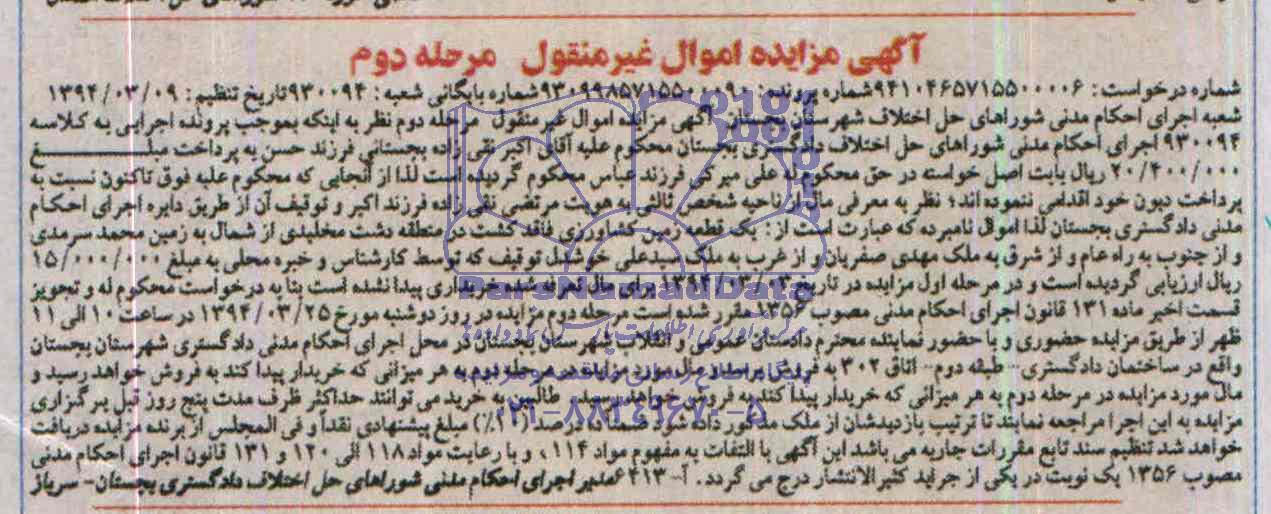 آگهی مزایده اموال غیرمنقول مرحله دوم
شماره درخواست: ۹۴۱۰۴۶۵۷۱۵۵۰۰۰۰۶ شماره پرونده: ۹۳۰۹۹۸۵۷۱۵۵۰۰۰۹۰ شماره بایگانی شعبه: ۹۳۰۰۹۴ تاریخ تنظیم: ۱۳۹۴/۰۳/۰۹
شعبه اجرای احکام مدنی شوراهای حل اختلاف شهرستان بجستان، آگهی مزایده اموال غیر منقول مرحله دوم نظر به اینکه بموجب پرونده اجرایی به کلاسه
۹۳۰۰۹۴ اجرای احکام مدنی شوراهای حل اختلاف دادگستری بجستان محکوم علیه آقای اکبر نقی زاده بجستانی فرزند حسن به پرداخت مبلـــــــغ
۲۰/۴۰۰/۰۰۰ ریال بابت اصل خواسته در حق محکوم له علی میرکی فرزند عباس محکوم گردیده است لذا از آنجایی که محکوم علیه فوق تاکنون نسبت به
پرداخت دیون خود اقدامی ننموده اند؛ نظر به معرفی مال از ناحیه شخص ثالثی به هویت مرتضی نقی زاده فرزند اکبر و توقیف آن از طریق دایره اجرای احکام
مدنی دادگستری بجستان لذا اموال نامبرده که عبارت است از: یک قطعه زمین کشاورزی فاقد کشت در منطقه دشت مخلیدی از شمال به زمین محمد سرمدی
و از جنوب به راه عام و از شرق به ملک مهدی صفریان و از غرب به ملک سیدعلی خوشدل توقیف که توسط کارشناس و خبره محلی به مبلغ ۱۵/۰۰۰/۰۰۰
ریال ارزیابی گردیده است و در مرحله اول مزایده در تاریخ ۱۳۹۴/۰۳/۰۳ برای مال تعرفه شده خریداری پیدا نشده است بنا به درخواست محکوم له و تجویز
قسمت اخیر ماده ۱۳۱ قانون اجرای احکام مدنی مصوب ۱۳۵۶ مقرر شده است مرحله دوم مزایده در روز دوشنبه مورخ ۱۳۹۴/۰۳/۲۵ در ساعت ۱۰ الی ۱۱
ظهر از طریق مزایده حضوری و با حضور نماینده محترم دادستان عمومی و انقلاب شهرستان بجستان در محل اجرای احکام مدنی دادگستری شهرستان بجستان
واقع در ساختمان دادگستری- طبقه دوم- اتاق ۳۰۲ به فروش برسد و مال مورد مزایده در مرحله دوم به هر میزانی که خریدار پیدا کند به فروش خواهد رسید و
مال مورد مزایده در مرحله دوم به هر میزانی که خریدار پیدا کند به فروش خواهد رسید. طالبین به خرید می توانند حداکثر ظرف مدت پنج روز قبل برگزاری
مزایده به این اجرا مراجعه نمایند تا ترتیب بازدیدشان از ملک مذکور داده شود ضمنا ده درصد (۱۰٪) مبلغ پیشنهادی نقداً و فی المجلس از برنده مزایده دریافت
خواهد شد تنظیم سند تابع مقررات جاریه می باشد این آگهی با التفات به مفهوم مواد ۱۱۴، و با رعایت مواد ۱۱۸ الی ۱۲۰ و ۱۳۱ قانون اجرای احکام مدنی
مصوب ۱۳۵۶ یک نوبت در یکی از جراید کثیرالانتشار درج می گردد. آ-۶۴۱۳ مدیر اجرای احکام مدنی شوراهای حل اختلاف دادگستری بجستان- سرباز
ParsNamadData
۰۲۱-۸۸۳۴۹۶۷۰-۵